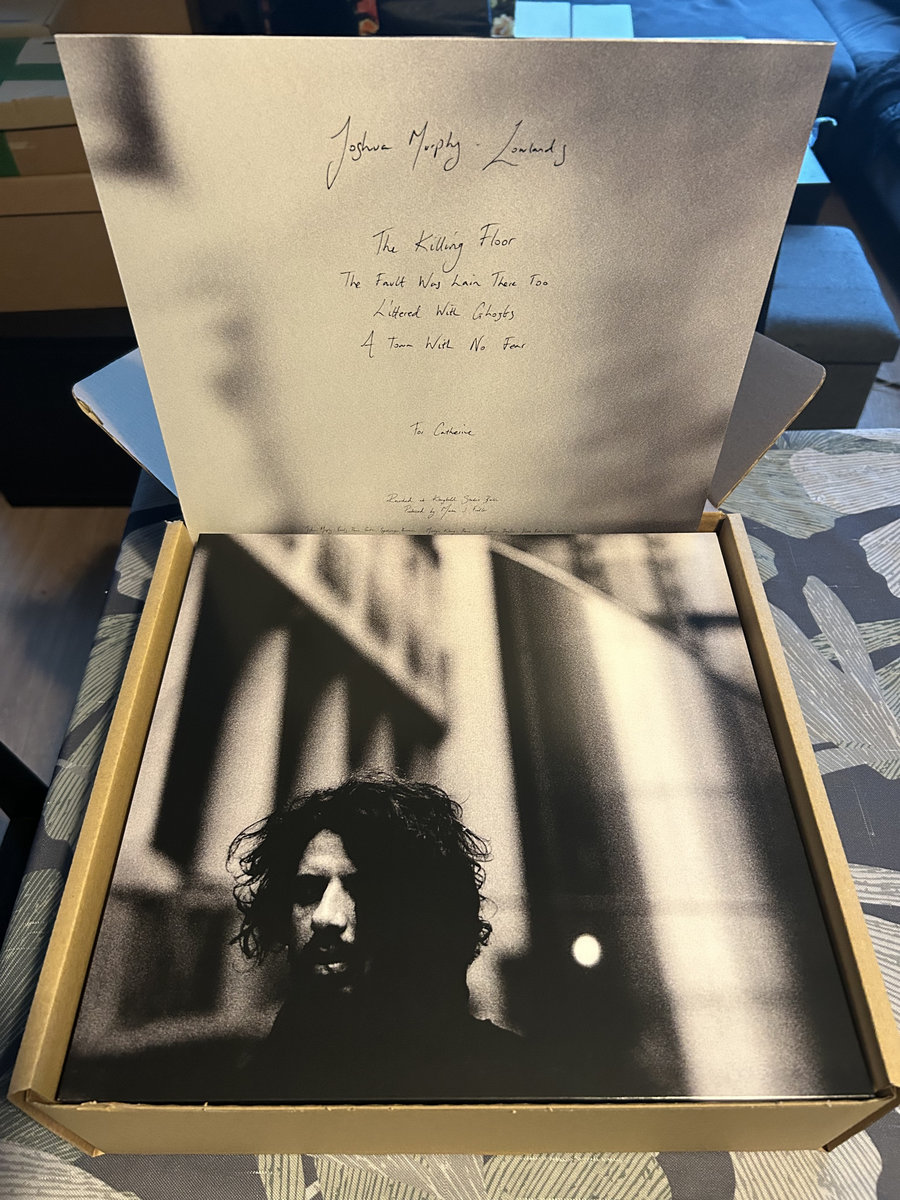 Joshua Murphy - Lowlands
The Killing Floor
The Fault Was Lain There Too
Littered With Ghosts
A Town With No Fear
For Catherine
Recorded at Studio
Produced by